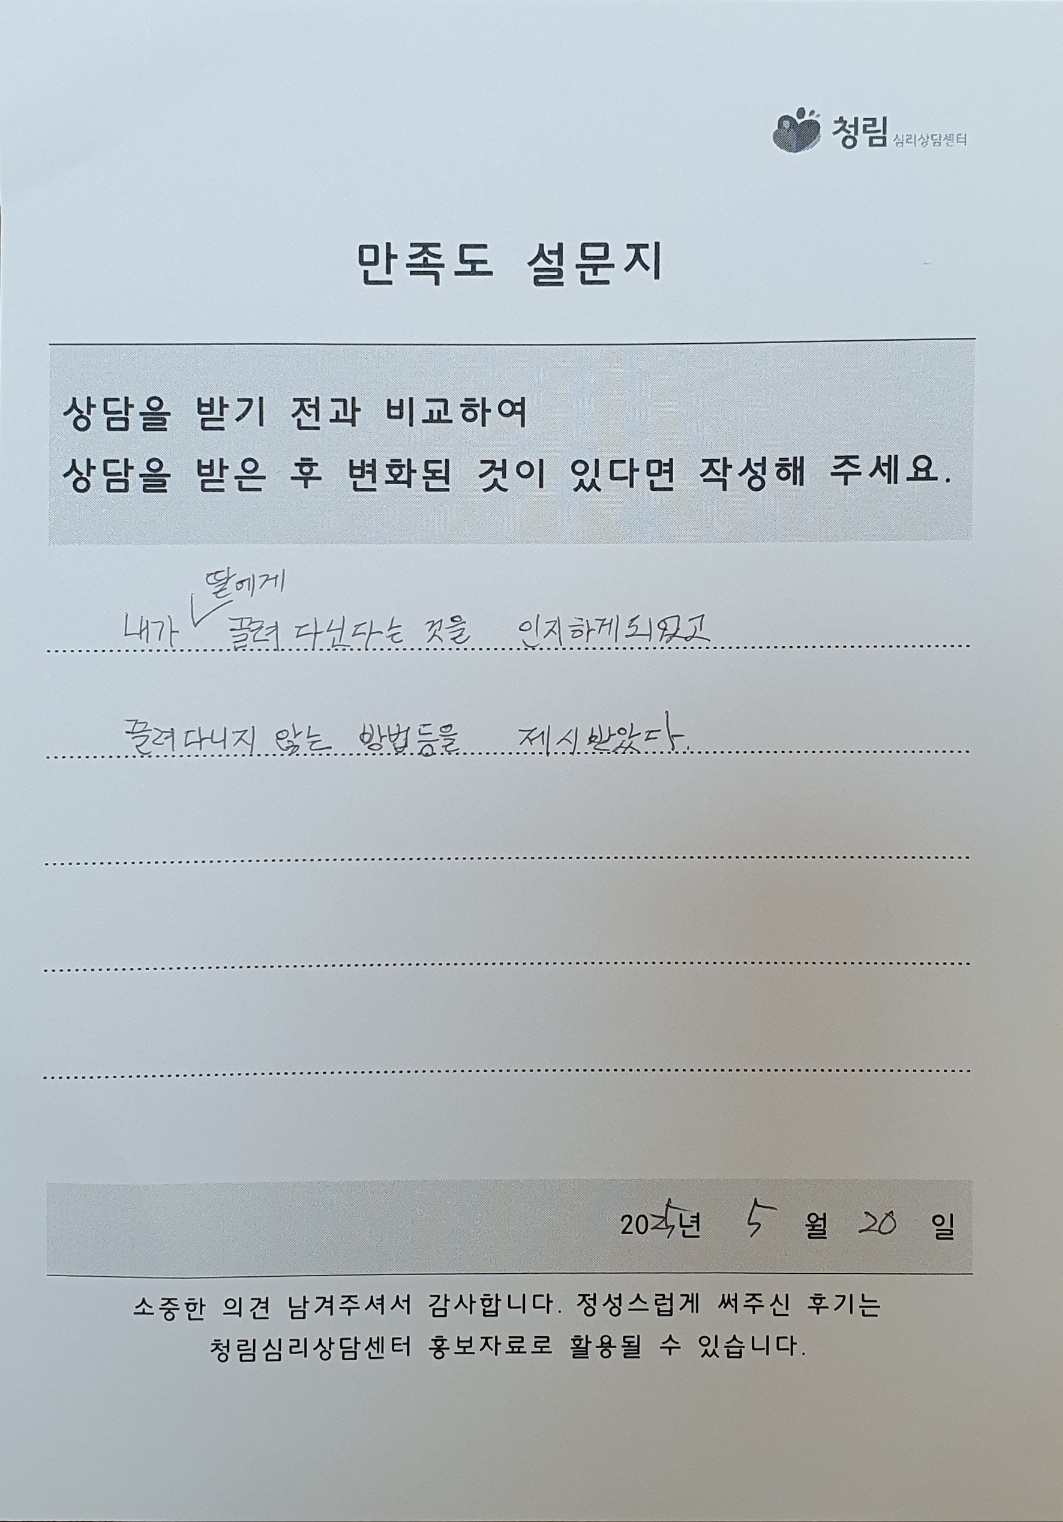 청림 심리상담센터
만족도 설문지
상담을 받기 전과 비교하여
상담을 받은 후 변화된 것이 있다면 작성해 주세요.
딸에게
내가 끌려 다닌다는 것을 인지하게되었고
끌려다니지 않는 방법등을 제시받았다.
2025년 5 월 20 일
소중한 의견 남겨주셔서 감사합니다. 정성스럽게 써주신 후기는
청림심리상담센터 홍보자료로 활용될 수 있습니다.